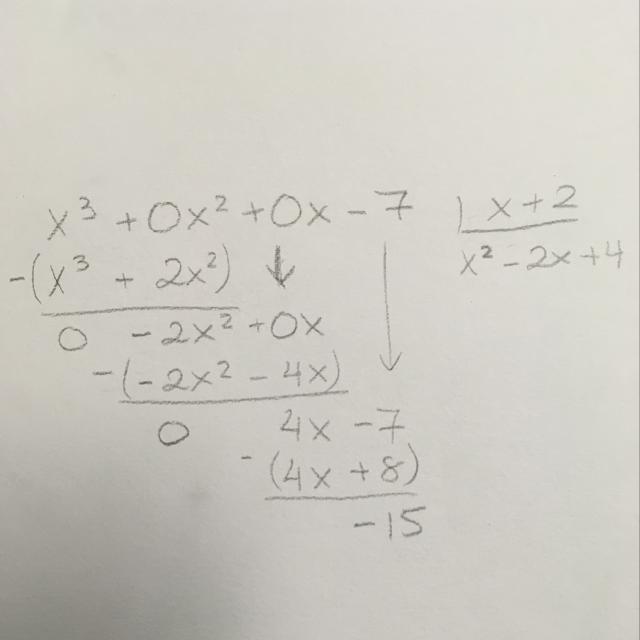 x³ + 0x² + 0x - 7 | x + 2
-(x³ + 2x²) ↓ x² - 2x + 4
0 - 2x² + 0x
-(-2x² - 4x)
0 4x - 7
-(4x + 8)
-15